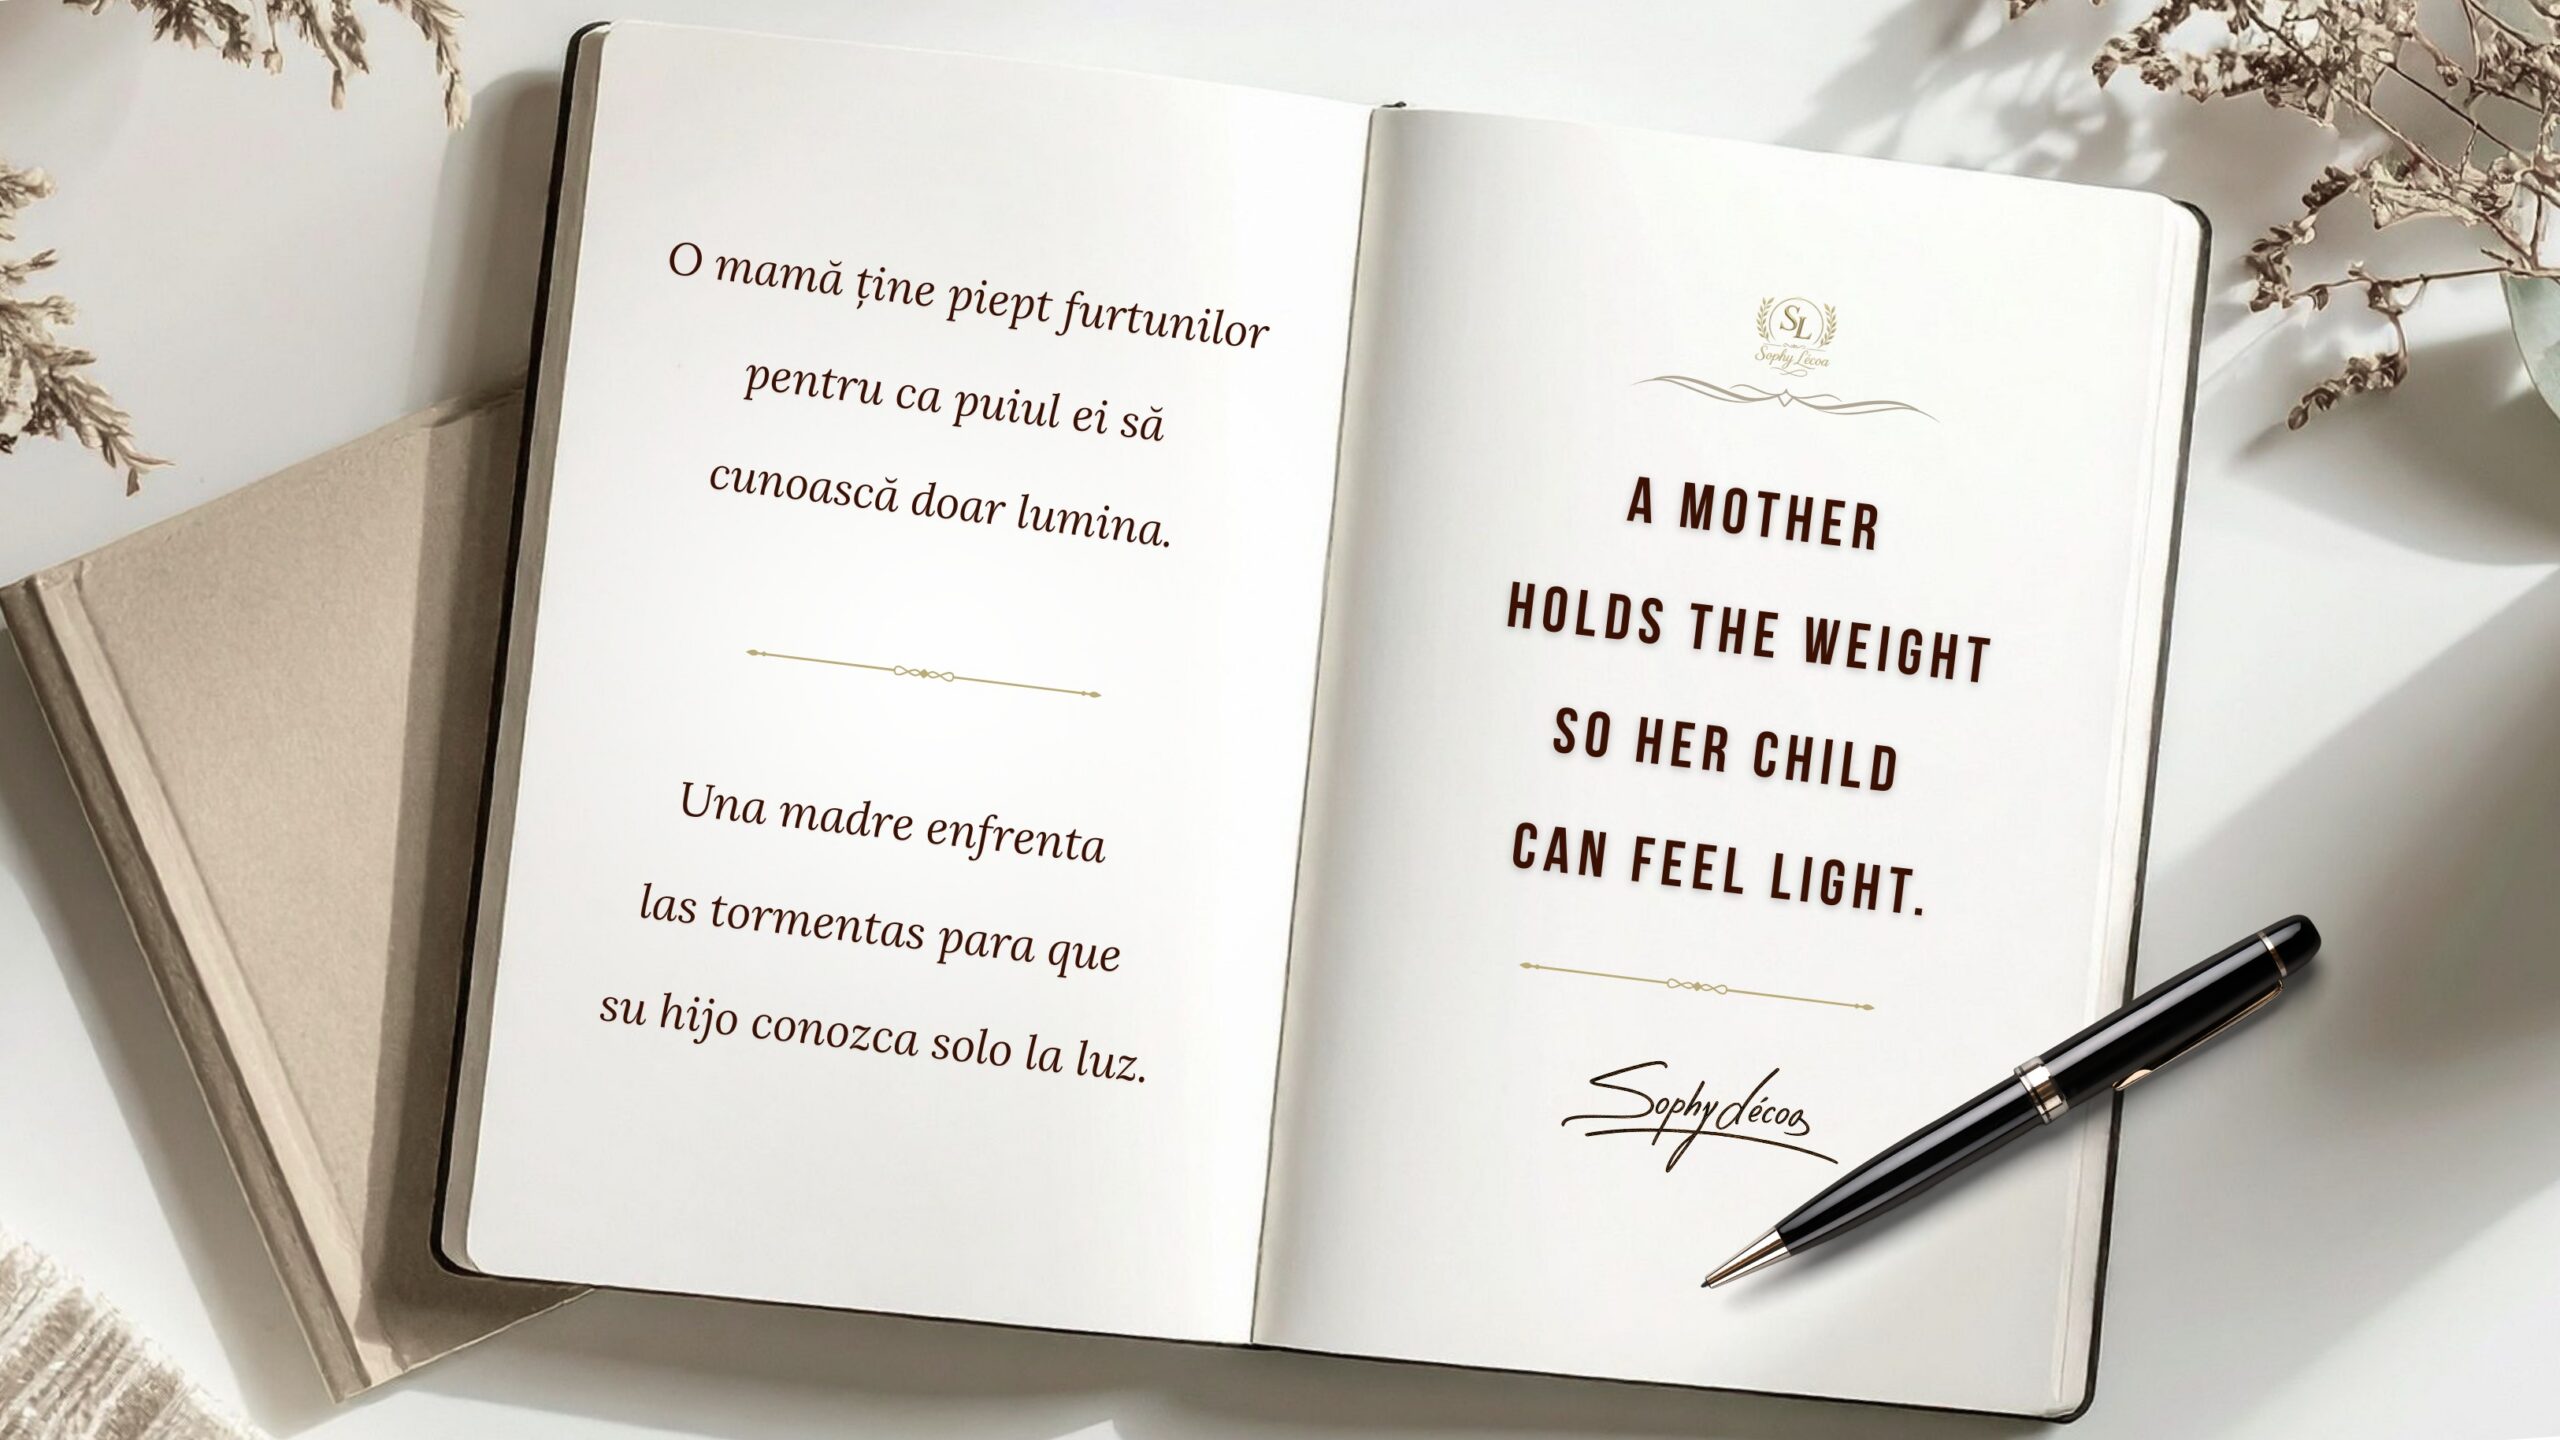 O mamă ține piept furtunilor
pentru ca puiul ei să
cunoască doar lumina.
Una madre enfrenta
las tormentas para que
su hijo conozca solo la luz.
SL
Sophy Lécoa
A MOTHER
HOLDS THE WEIGHT
SO HER CHILD
CAN FEEL LIGHT.
Sophy Lécoa